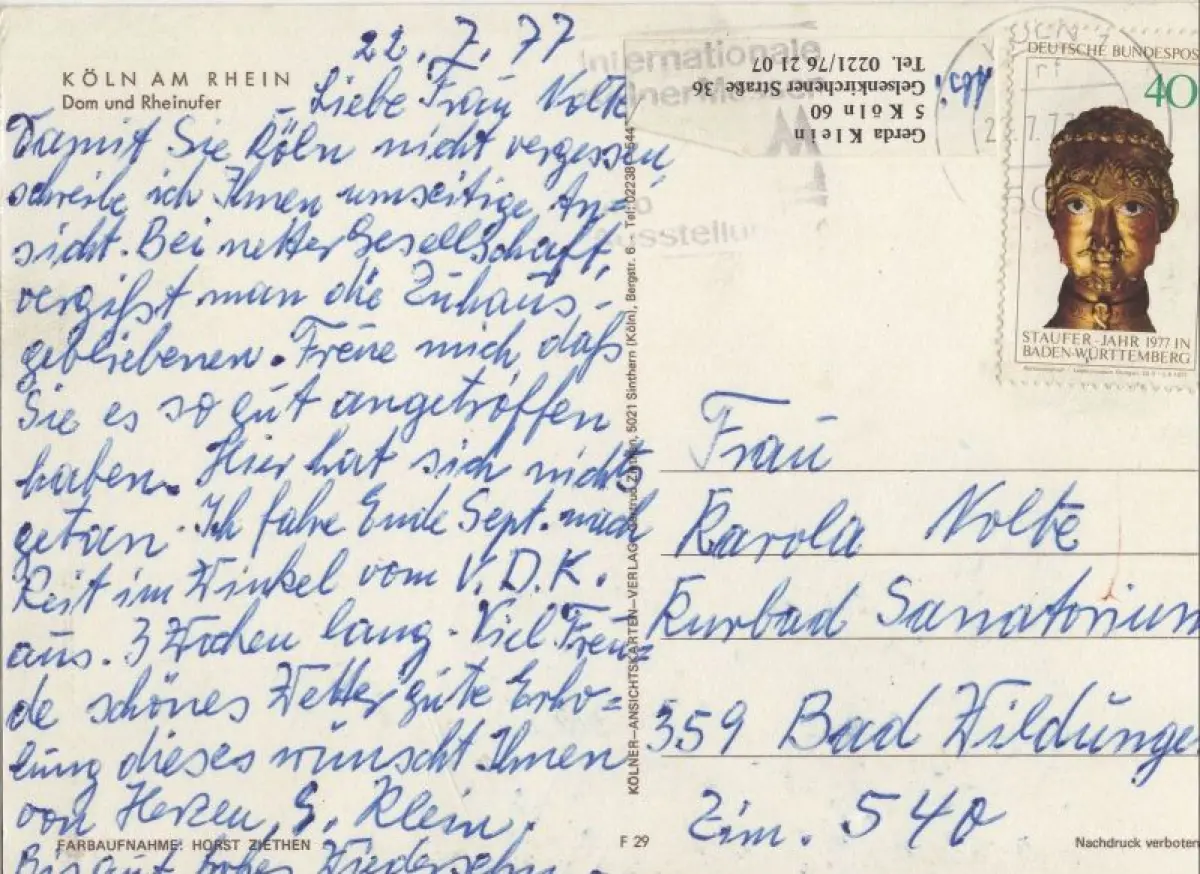 22.7.77
KÖLN AM RHEIN
Dom und Rheinufer
- Liebe Frau Nolte
Damit Sie Köln nicht vergessen,
schreibe ich Ihnen umseitige An=
sicht. Bei netter Gesellschaft,
vergißst man die Zuhaus-
gebliebenen. Freue mich, daß
Sie es so gut angetroffen
haben. Hier hat sich nichts
getan. Ich fahre Ende Sept. nach
Reit im Winkel vom V.D.K.
aus. 3 Wochen lang. Viel Freu=
de schönes Wetter gute Erho=
lung dieses wünscht Ihnen
von Herzen, G. Klein.
FARBAUFNAHME: HORST ZIETHEN
Bis auf frohes Wiedersehn
KÖLNER-ANSICHTSKARTEN-VERLAG Ziethen, 5021 Sinthern (Köln), Bergstr. 6 - Tel.
F 29
Internationale
Ausstellu
Abs.
Gerda Klein
5 Köln 60
Gelsenkirchener Straße 36
Tel. 0221/76 21 07
DEUTSCHE BUNDESPOS
40
STAUFER-JAHR 1977 IN
BADEN-WÜRTTEMBERG
Frau
Karola Nolte
Kurbad Sanatorium
359 Bad Wildunge
Zim. 540
Nachdruck verboten